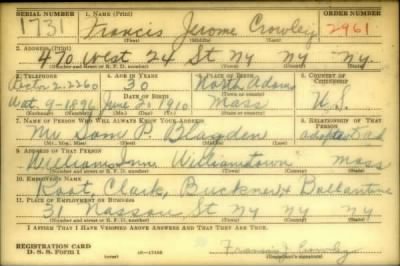 SERIAL NUMBER 1. NAME (Print) ORDER NUMBER
1731 Francis Jerome Crowley 2961
(First) (Middle) (Last)
2. ADDRESS (Print)
470 West 24 St NY NY NY.
(Number and street or R. F. D. number) (Town) (County) (State)
3. TELEPHONE 4. AGE IN YEARS 5. PLACE OF BIRTH 6. COUNTRY OF CITIZENSHIP
30 North Adams
DATE OF BIRTH
Wat. 9-1896 June 20 1910 Mass U.S.
7. NAME OF PERSON WHO WILL ALWAYS KNOW YOUR ADDRESS 8. RELATIONSHIP OF THAT PERSON
Mr. Tom P. Blagden
(Mr., Mrs., Miss) (First) (Middle) (Last)
9. ADDRESS OF THAT PERSON
Williams Inn Williamstown Mass
(Number and street or R. F. D. number) (Town) (County) (State)
10. EMPLOYER'S NAME
Root, Clark, Buckner & Ballantine
11. PLACE OF EMPLOYMENT OR BUSINESS
31 Nassau St NY NY NY
(Number and street or R. F. D. number) (Town) (County) (State)
I AFFIRM THAT I HAVE VERIFIED ABOVE ANSWERS AND THAT THEY ARE TRUE.
REGISTRATION CARD
D. S. S. Form 1 Francis J Crowley
(Registrant's signature)